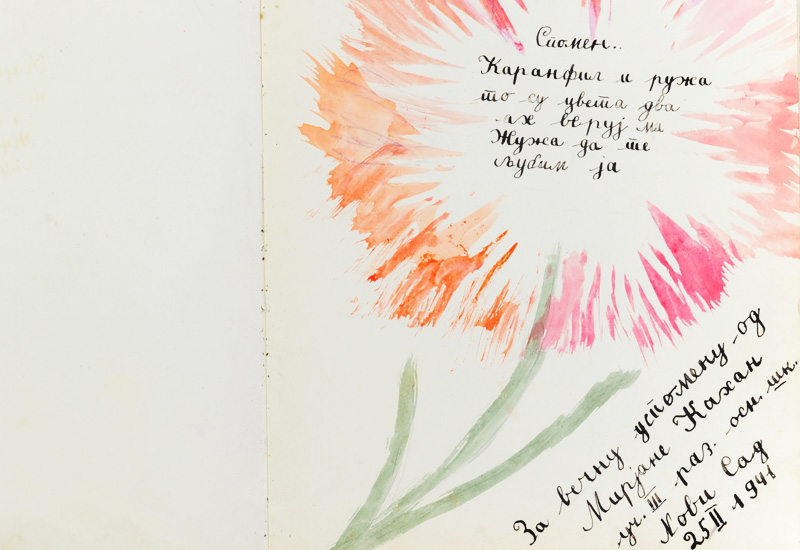 Спомен..
Каранфил и ружа
то су цвета два
ах веруј ма
Жужа да те
љубим ја
За вечну успомену од
Мирјане Кахан
уч. III раз. осн. шк.
Нови Сад
25 II 1941